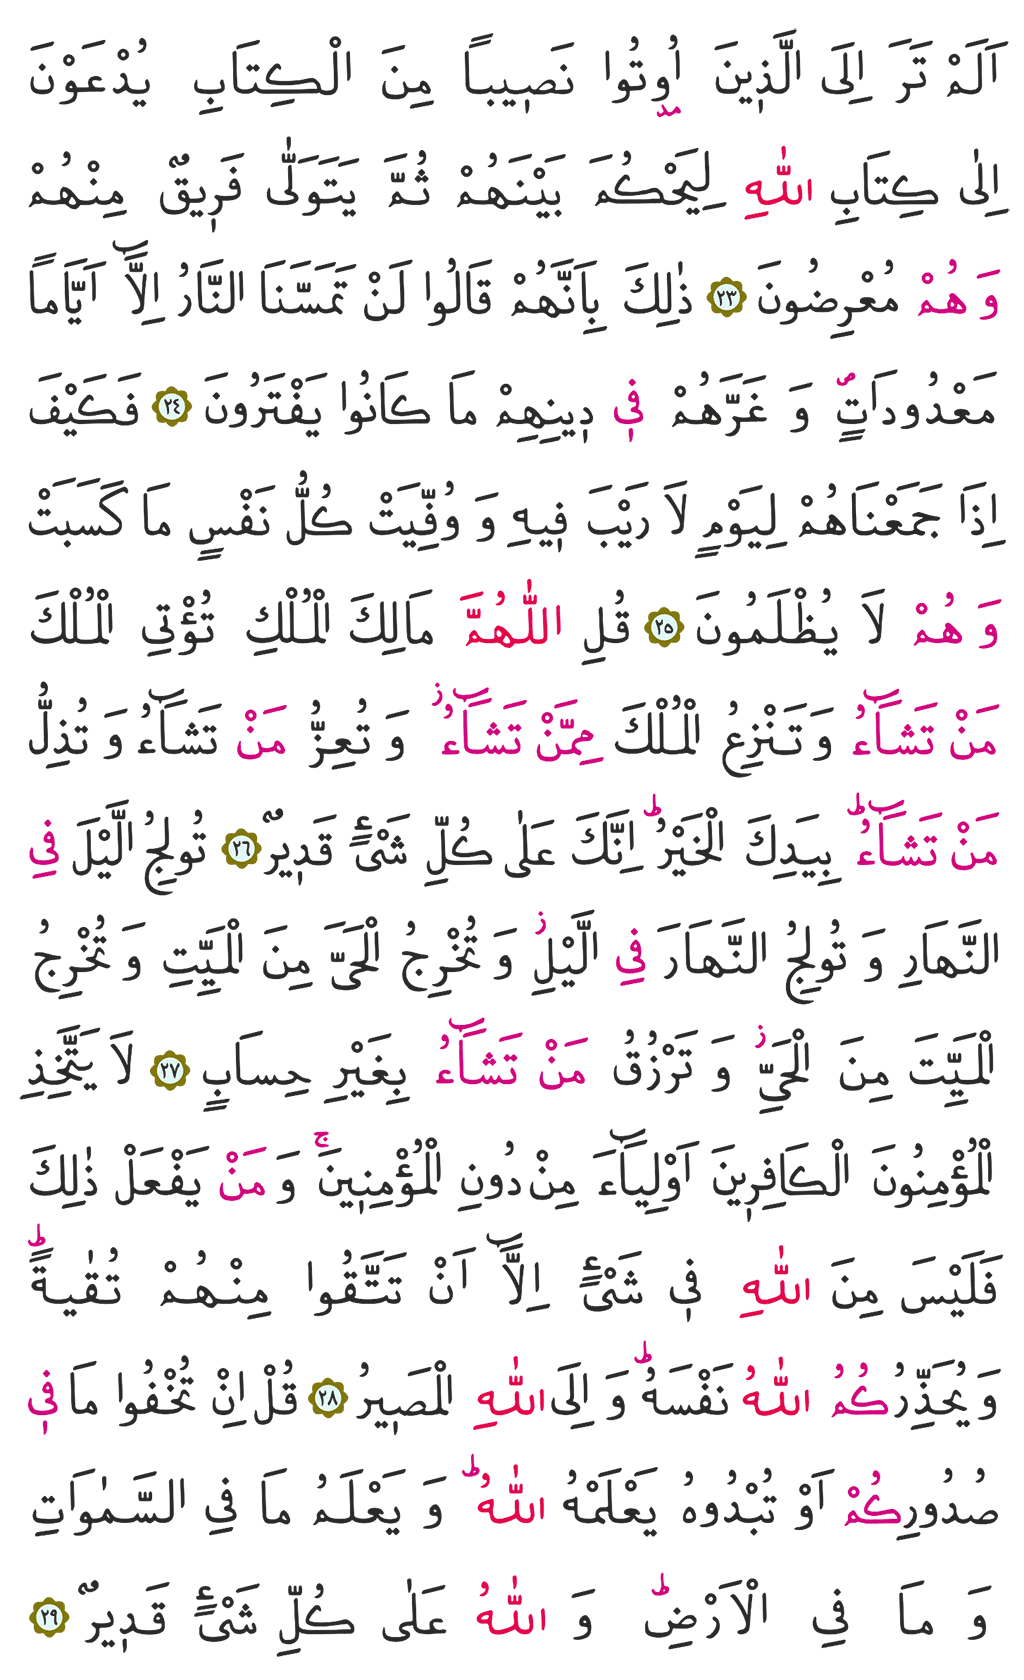 اَلَمْ تَرَ اِلَى الَّذٖينَ اُوتُوا نَصٖيباً مِنَ الْكِتَابِ يُدْعَوْنَ
اِلٰى كِتَابِ اللّٰهِ لِيَحْكُمَ بَيْنَهُمْ ثُمَّ يَتَوَلّٰى فَرٖيقٌ مِنْهُمْ
وَ هُمْ مُعْرِضُونَ ﴿٢٣﴾ ذٰلِكَ بِاَنَّهُمْ قَالُوا لَنْ تَمَسَّنَا النَّارُ اِلَّٓا اَيَّاماً
مَعْدُودَاتٍ وَ غَرَّهُمْ فٖي دٖينِهِمْ مَا كَانُوا يَفْتَرُونَ ﴿٢٤﴾ فَكَيْفَ
اِذَا جَمَعْنَاهُمْ لِيَوْمٍ لَا رَيْبَ فٖيهِ وَ وُفِّيَتْ كُلُّ نَفْسٍ مَا كَسَبَتْ
وَ هُمْ لَا يُظْلَمُونَ ﴿٢٥﴾ قُلِ اللّٰهُمَّ مَالِكَ الْمُلْكِ تُؤْتِي الْمُلْكَ
مَنْ تَشَٓاءُ وَ تَنْزِعُ الْمُلْكَ مِمَّنْ تَشَٓاءُؗ وَ تُعِزُّ مَنْ تَشَٓاءُ وَ تُذِلُّ
مَنْ تَشَٓاءُؕ بِيَدِكَ الْخَيْرُؕ اِنَّكَ عَلٰى كُلِّ شَيْءٍ قَدٖيرٌ ﴿٢٦﴾ تُولِجُ الَّيْلَ فِي
النَّهَارِ وَ تُولِجُ النَّهَارَ فِي الَّيْلِؗ وَ تُخْرِجُ الْحَيَّ مِنَ الْمَيِّتِ وَ تُخْرِجُ
الْمَيِّتَ مِنَ الْحَيِّؗ وَ تَرْزُقُ مَنْ تَشَٓاءُ بِغَيْرِ حِسَابٍ ﴿٢٧﴾ لَا يَتَّخِذِ
الْمُؤْمِنُونَ الْكَافِرٖينَ اَوْلِيَٓاءَ مِنْ دُونِ الْمُؤْمِنٖينَۚ وَ مَنْ يَفْعَلْ ذٰلِكَ
فَلَيْسَ مِنَ اللّٰهِ فٖي شَيْءٍ اِلَّٓا اَنْ تَتَّقُوا مِنْهُمْ تُقٰيةًؕ
وَ يُحَذِّرُكُمُ اللّٰهُ نَفْسَهُؕ وَ اِلَى اللّٰهِ الْمَصٖيرُ ﴿٢٨﴾ قُلْ اِنْ تُخْفُوا مَا فٖي
صُدُورِكُمْ اَوْ تُبْدُوهُ يَعْلَمْهُ اللّٰهُؕ وَ يَعْلَمُ مَا فِي السَّمٰوَاتِ
وَ مَا فِي الْاَرْضِؕ وَ اللّٰهُ عَلٰى كُلِّ شَيْءٍ قَدٖيرٌ ﴿٢٩﴾